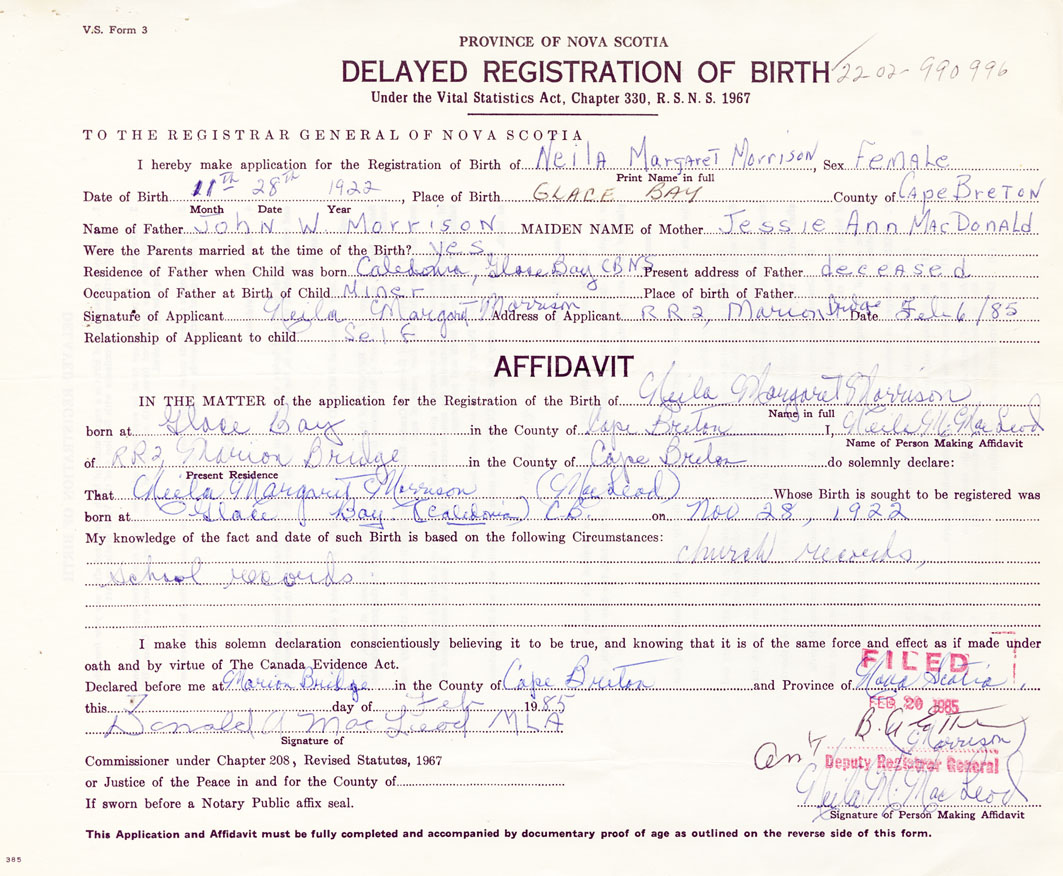 V.S. Form 3
PROVINCE OF NOVA SCOTIA
DELAYED REGISTRATION OF BIRTH 22-02-990996
Under the Vital Statistics Act, Chapter 330, R. S. N. S. 1967
TO THE REGISTRAR GENERAL OF NOVA SCOTIA
I hereby make application for the Registration of Birth of Neila Margaret Morrison, Sex Female
Print Name in full
Date of Birth 11th 28th 1922, Place of Birth GLACE BAY County of Cape Breton
Month Date Year
Name of Father John W. Morrison MAIDEN NAME of Mother Jessie Ann MacDonald
Were the Parents married at the time of the Birth? yes
Residence of Father when Child was born Caledonia, Glace Bay CB NS Present address of Father deceased
Occupation of Father at Birth of Child Miner Place of birth of Father
Signature of Applicant Neila Margaret Morrison Address of Applicant RR2, Marion Bridge Date Feb 6/85
Relationship of Applicant to child Self
AFFIDAVIT
IN THE MATTER of the application for the Registration of the Birth of Neila Margaret Morrison
Name in full
born at Glace Bay in the County of Cape Breton I, Neila M. MacLeod
Name of Person Making Affidavit
of RR2 Marion Bridge in the County of Cape Breton do solemnly declare:
Present Residence
That Neila Margaret Morrison (MacLeod) Whose Birth is sought to be registered was
born at Glace Bay (Caledonia) C.B. on Nov 28, 1922
My knowledge of the fact and date of such Birth is based on the following Circumstances:
church records,
school records
I make this solemn declaration conscientiously believing it to be true, and knowing that it is of the same force and effect as if made under
oath and by virtue of The Canada Evidence Act.
FILED
Declared before me at Marion Bridge in the County of Cape Breton and Province of Nova Scotia
this 7 day of Feb 1985
FEB 20 1985
Donald A MacLeod MLA
Signature of
(Morrison)
Commissioner under Chapter 208, Revised Statutes, 1967
Deputy Registrar General
or Justice of the Peace in and for the County of
Neila M. MacLeod
If sworn before a Notary Public affix seal.
Signature of Person Making Affidavit
This Application and Affidavit must be fully completed and accompanied by documentary proof of age as outlined on the reverse side of this form.
385